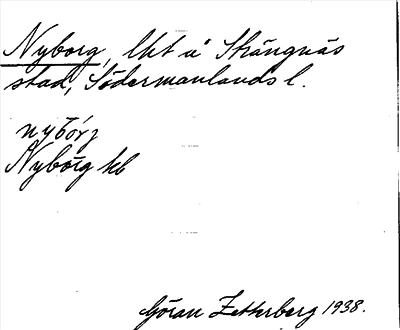 Nyborg, lht å Strängnäs
stad, Södermanlands l.
nybórj
Nyborg hb
Göran Zetterberg 1938.